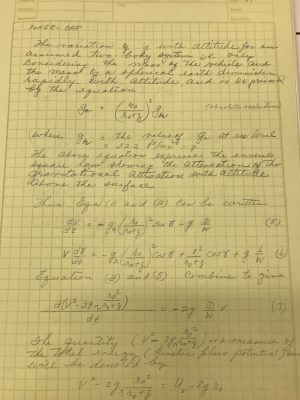 POWER - OFF
The variation of g with altitude for an
assumed two body system ie only
considering the mass of the vehicle and
the mass of a spherical earth diminishes
rapidly with altitude and is expressed
by the equation
g = (r₀/(r₀+z))² g
where g = the value of g at sea level
= 32.2 ft/sec²
The above equation expresses the inverse
square law showing the attenuation of the
gravitational attraction with altitude
above the surface
Thus Eqn (1) and (2) can be written
dV/dt = -g (r₀/(r₀+z))² sin γ - g D/W (5)
V dγ/dt = -g (r₀/(r₀+z))² cos γ + V²/(r₀+z) cos γ + g L/W (6)
Equation (3) and (5) Combine to give
d(V² - 2g r₀²/(r₀+z))/dt = -2g D/W V (7)
The quantity (V² - 2g r₀²/(r₀+z)) is a measure of
the total energy (kinetic plus potential) and
will be denoted by
V² - 2g r₀²/(r₀+z) = u - 2g r₀